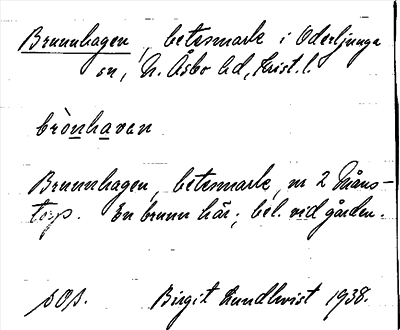 Brunnhagen, betesmark i Oderljunga
sn, N. Åsbo hd, Krist. l.
brònhavan
Brunnhagen, betesmark, nr 2 Måns-
torp. En brunn här; bel. vid gården.
sOp. Birgit Lundkvist 1938.